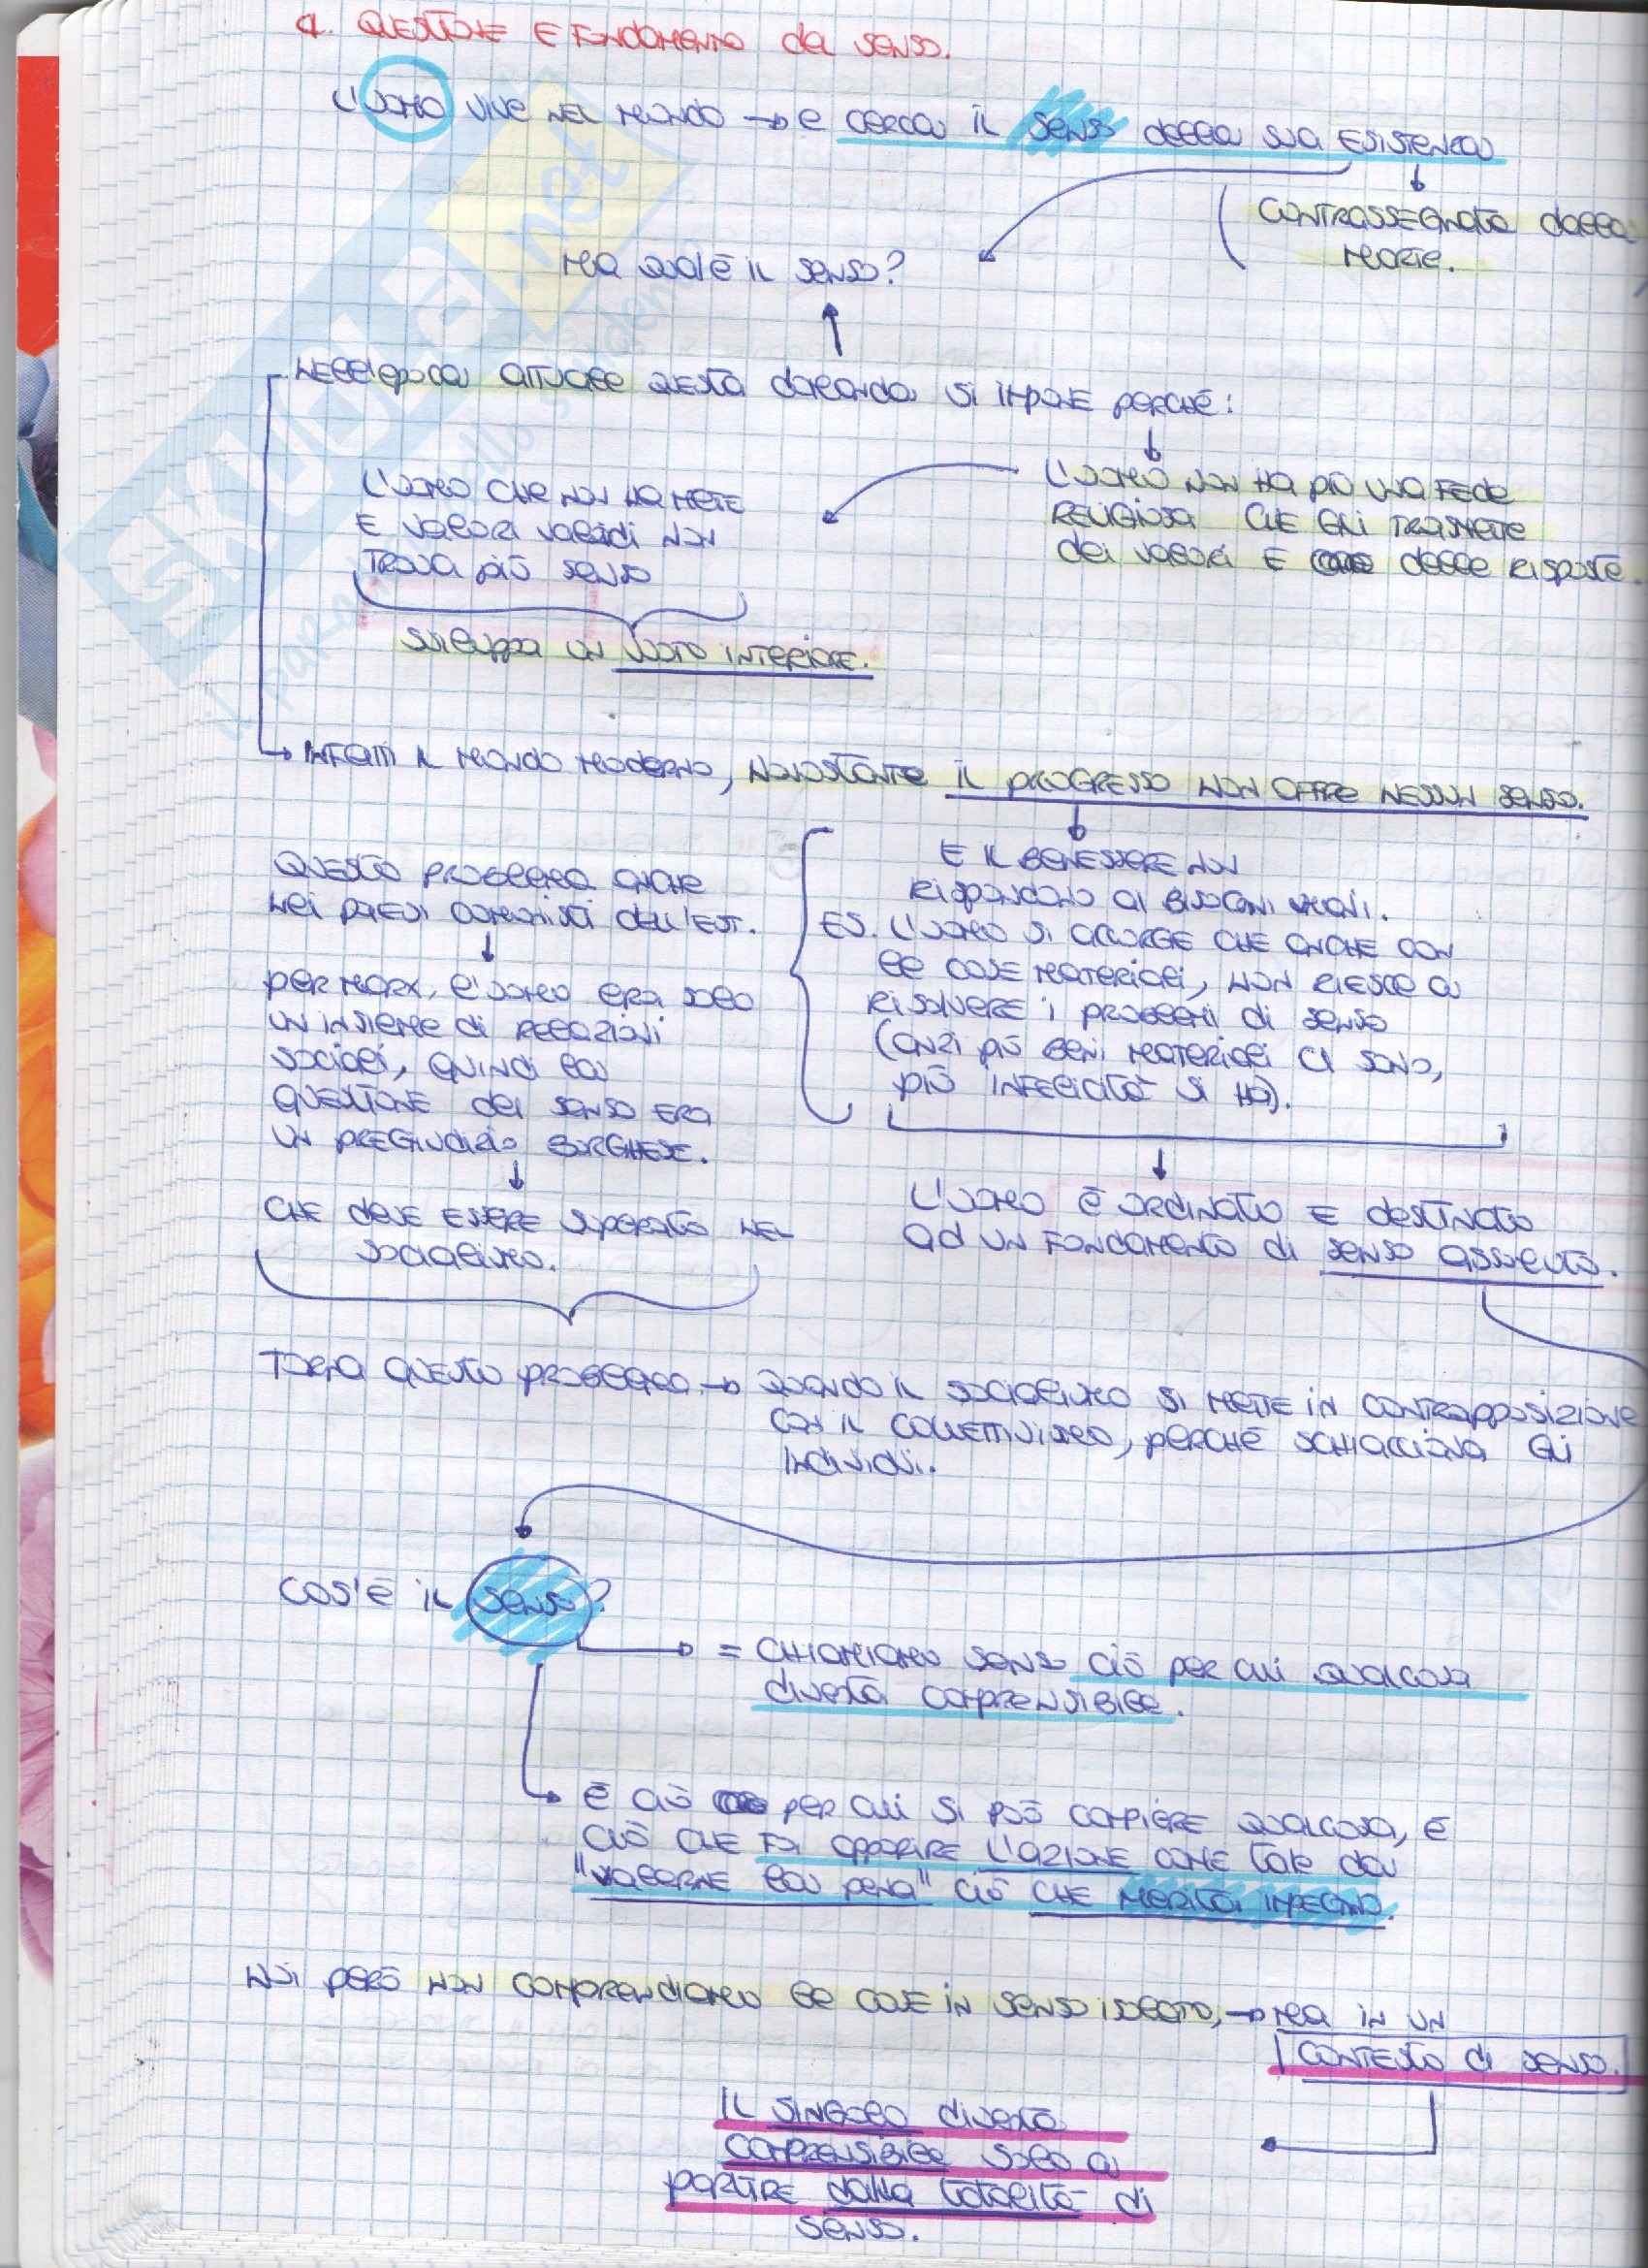 a. QUESTIONE E FONDAMENTO del SENSO.
L'UOMO VIVE NEL MONDO → e CERCA IL SENSO della SUA ESISTENZA
CONTRASSEGNATA dalla
MORTE.
MA QUAL È IL SENSO?
NELL'epoca ATTUALE QUESTA domanda SI IMPONE PERCHÉ:
L'UOMO NON HA PIÙ UNA FEDE
RELIGIOSA CHE GLI TRASMETTE
dei VALORI E delle RISPOSTE.
L'UOMO CHE NON HA METE
E VALORI VALIDI NON
TROVA PIÙ SENSO
SVILUPPA UN VUOTO INTERIORE.
→ INFATTI IL MONDO MODERNO, NONOSTANTE IL PROGRESSO NON OFFRE NESSUN SENSO.
E IL BENESSERE NON
RISPONDONO AI BISOGNI UMANI.
ES. L'UOMO SI ACCORGE CHE ANCHE CON
LE COSE MATERIALI, NON RIESCE A
RISOLVERE I PROBLEMI di SENSO
(ANZI PIÙ BENI MATERIALI CI SONO,
PIÙ INFELICITÀ SI HA).
L'UOMO È ORDINATO E DESTINATO
AD UN FONDAMENTO di SENSO ASSOLUTO.
QUESTO PROBLEMA ANCHE
NEI PAESI COMUNISTI DELL'EST.
PER MARX, L'UOMO ERA SOLO
UN INSIEME di RELAZIONI
SOCIALI, QUINDI LA
QUESTIONE del SENSO ERA
UN PREGIUDIZIO BORGHESE.
CHE deve ESSERE SUPERATO NEL
SOCIALISMO.
TORNA QUESTO PROBLEMA → QUANDO IL SOCIALISMO SI METTE IN CONTRAPPOSIZIONE
CON IL COLLETTIVISMO, PERCHÉ SCHIACCIAVA GLI
INDIVIDUI.
COS'È IL SENSO?
= CHIAMIAMO SENSO CIÒ PER CUI QUALCOSA
DIVENTA COMPRENSIBILE.
È CIÒ PER CUI SI PUÒ COMPIERE QUALCOSA, E
CIÒ CHE FA APPARIRE L'AZIONE COME TALE da
"VALERNE LA PENA" CIÒ CHE MERITA IMPEGNO.
NOI PERÒ NON COMPRENDIAMO LE COSE IN SENSO ISOLATO, → MA IN UN
CONTESTO di SENSO.
IL SINGOLO DIVENTA
COMPRENSIBILE SOLO A
PARTIRE dalla TOTALITÀ di
SENSO.
SKUOLA.net